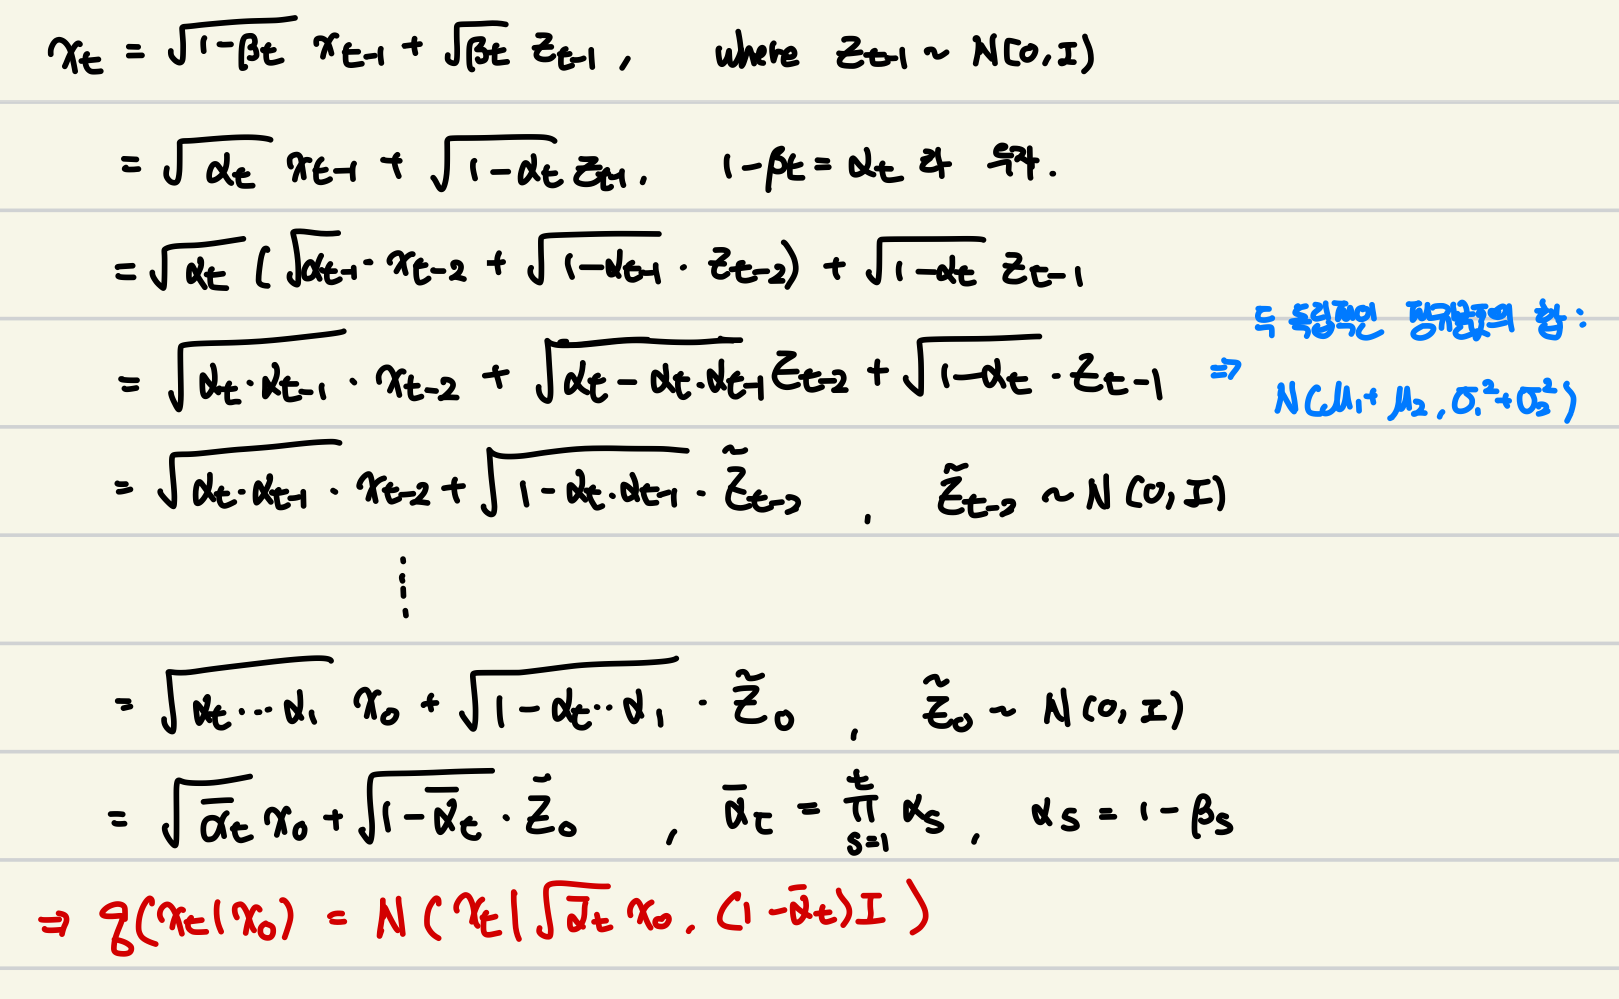 x_t = √(1-β_t) x_{t-1} + √(β_t) z_{t-1} , where z_{t-1} ~ N(0, I)
= √(α_t) x_{t-1} + √(1-α_t) z_{t-1} . 1-β_t = α_t 라
= √(α_t) (√(α_{t-1}) · x_{t-2} + √(1-α_{t-1}) · z_{t-2}) + √(1-α_t) z_{t-1}
= √(α_t·α_{t-1}) · x_{t-2} + √(α_t - α_t·α_{t-1}) z_{t-2} + √(1-α_t) · z_{t-1}
⇒ 두 독립적인 정규분포의 합 :
N(μ_1 + μ_2, σ_1² + σ_2²)
= √(α_t·α_{t-1}) · x_{t-2} + √(1-α_t·α_{t-1}) · z̃_{t-2} , z̃_{t-2} ~ N(0, I)
⋮
= √(α_t⋯α_1) x_0 + √(1-α_t⋯α_1) · z̃_0 , z̃_0 ~ N(0, I)
= √(ᾱ_t) x_0 + √(1-ᾱ_t) · z̄_0 , ᾱ_t = ∏_{s=1}^{t} α_s , α_s = 1 - β_s
⇒ q(x_t|x_0) = N(x_t | √(ᾱ_t) x_0, (1-ᾱ_t)I)